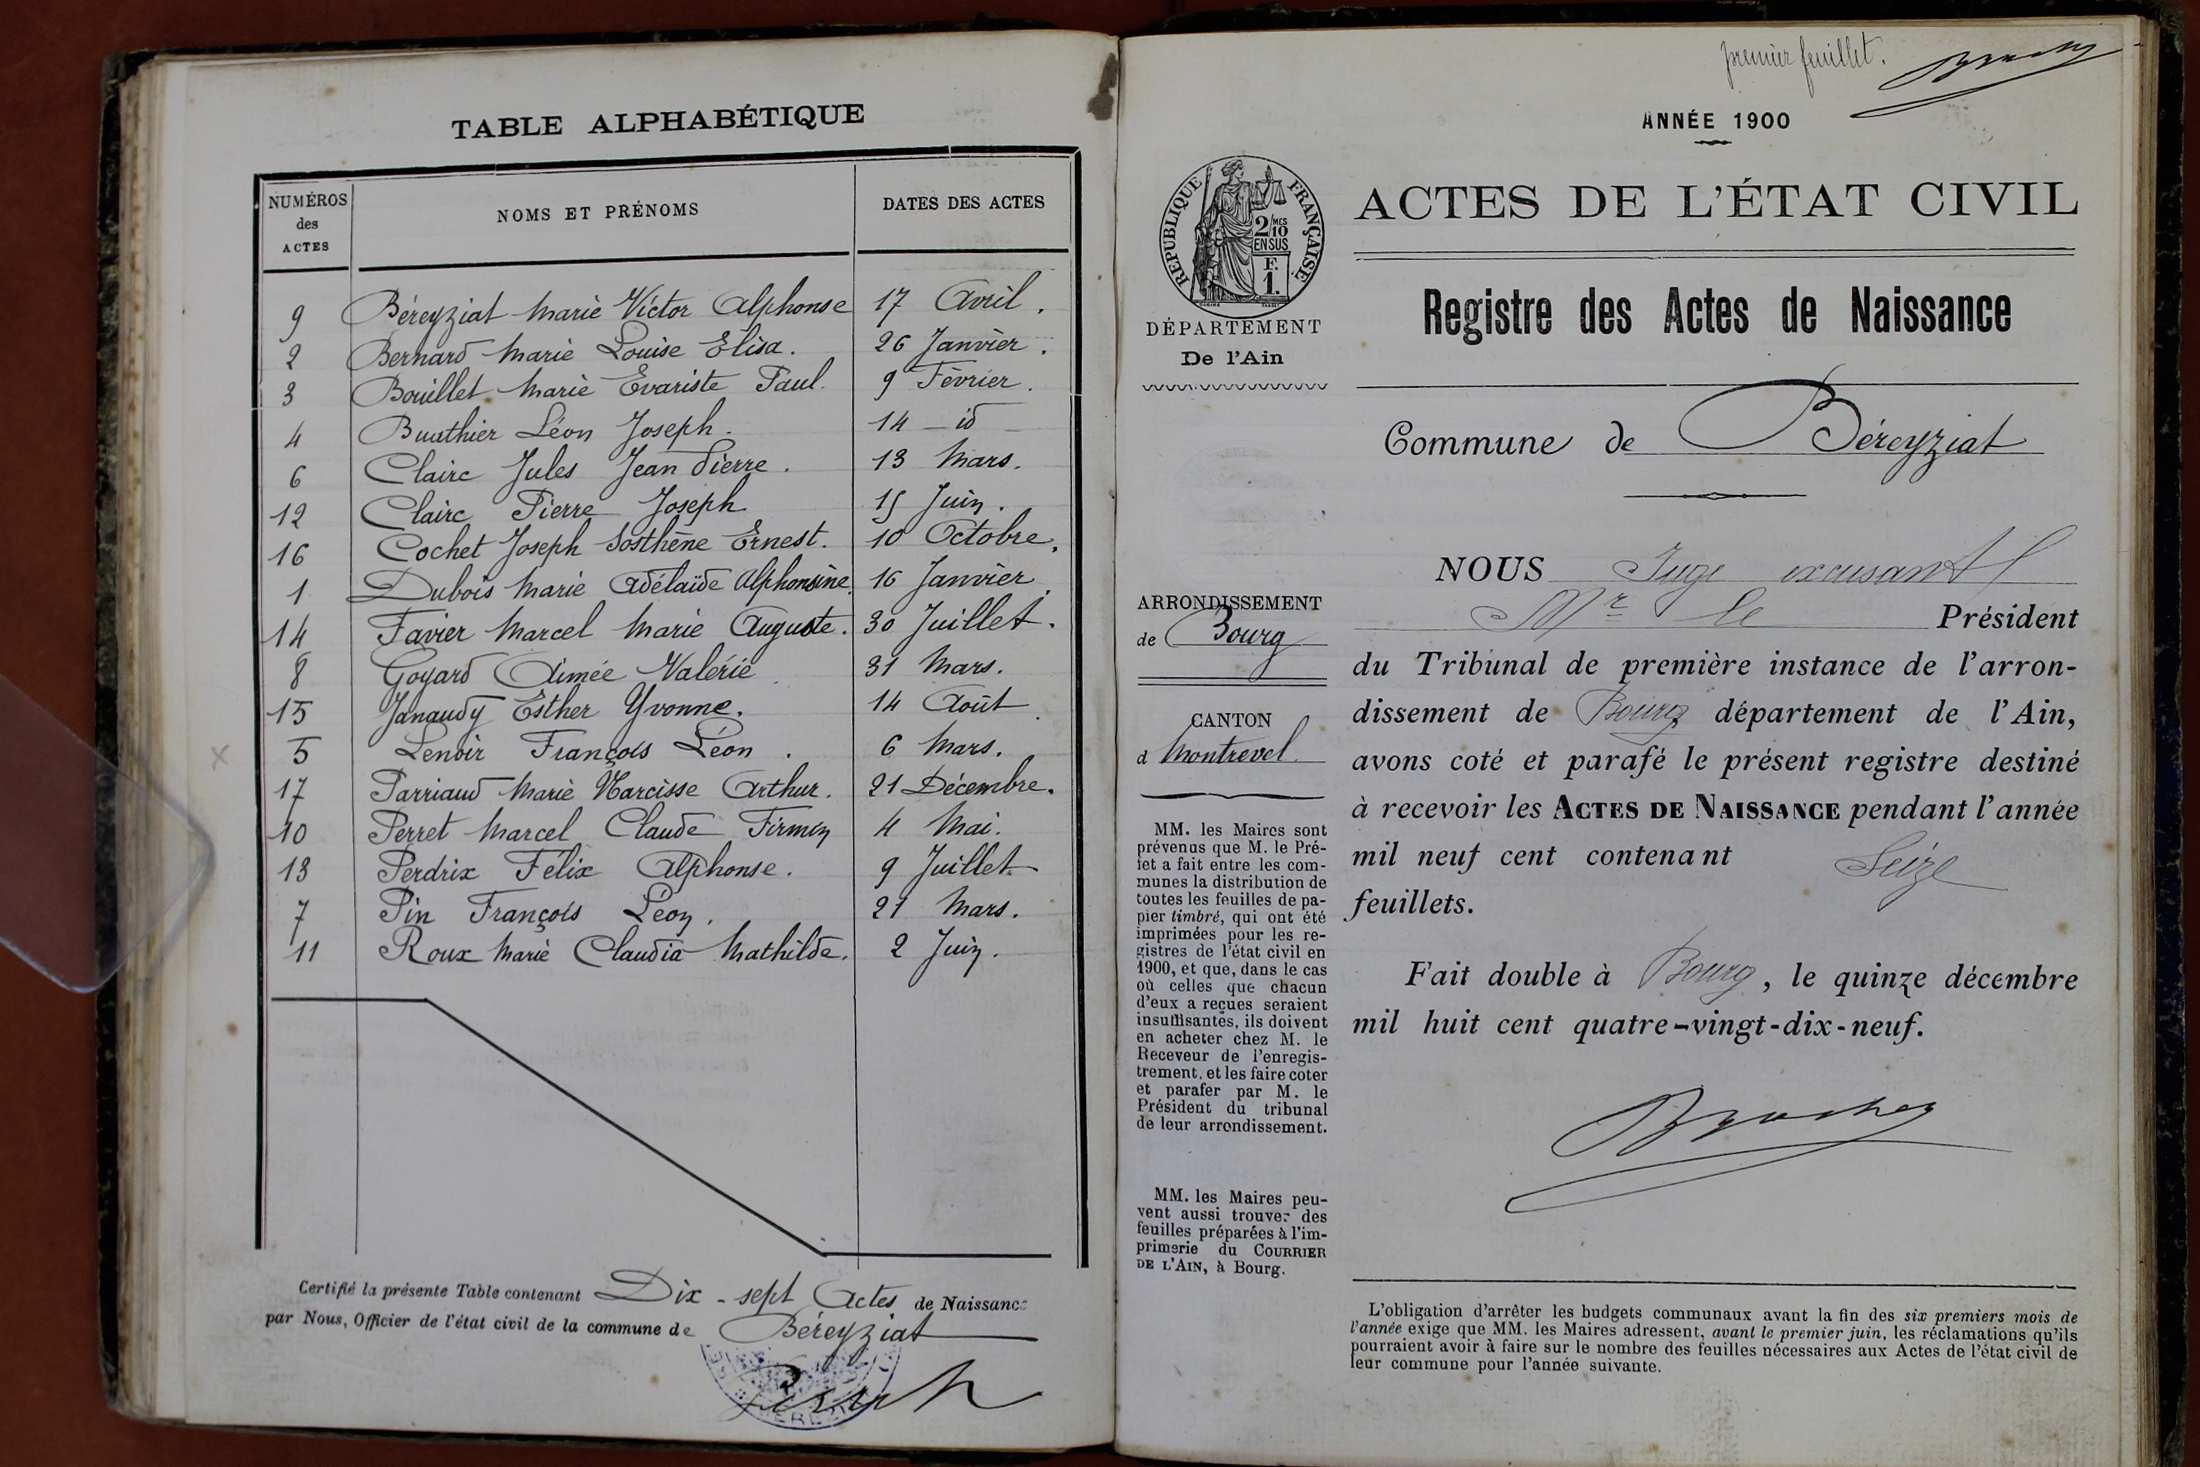 TABLE ALPHABÉTIQUE
NUMÉROS des ACTES NOMS ET PRÉNOMS DATES DES ACTES
9 Béreyziat Marie Victor Alphonse 17 Avril.
2 Bernard Marie Louise Elisa. 26 Janvier.
3 Bouillet Marie Evariste Paul. 9 Février.
4 Buathier Léon Joseph. 14 - id -
6 Clairc Jules Jean Pierre. 13 Mars.
12 Clairc Pierre Joseph 15 Juin.
16 Cochet Joseph Sosthène Ernest. 10 Octobre.
1 Dubois Marie Adélaïde Alphonsine. 16 Janvier.
14 Favier Marcel Marie Auguste. 30 Juillet.
8 Goyard Aimée Valérie. 31 Mars.
15 Janaudy Esther Yvonne. 14 Août.
5 Lenoir François Léon. 6 Mars.
17 Parriaud Marie Narcisse Arthur. 21 Décembre.
10 Perret Marcel Claude Firmin 4 Mai.
13 Perdrix Félix Alphonse. 9 Juillet
7 Pin François Léon. 21 Mars.
11 Roux Marie Claudia Mathilde. 2 Juin.
Certifié la présente Table contenant Dix-sept Actes de Naissance
par Nous, Officier de l'état civil de la commune de Béreyziat
premier feuillet.
ANNÉE 1900
RÉPUBLIQUE FRANÇAISE
2/10 MES
EN SUS
F.
1.
ACTES DE L'ÉTAT CIVIL
Registre des Actes de Naissance
DÉPARTEMENT
De l'Ain
Commune de Béreyziat
ARRONDISSEMENT
de Bourg
CANTON
d Montrevel.
MM. les Maires sont
prévenus que M. le Pré-
fet a fait entre les com-
munes la distribution de
toutes les feuilles de pa-
pier timbré, qui ont été
imprimées pour les re-
gistres de l'état civil en
1900, et que, dans le cas
où celles que chacun
d'eux a reçues seraient
insuffisantes, ils doivent
en acheter chez M. le
Receveur de l'enregis-
trement, et les faire coter
et parafer par M. le
Président du tribunal
de leur arrondissement.
MM. les Maires peu-
vent aussi trouver des
feuilles préparées à l'im-
primerie du COURRIER
DE L'AIN, à Bourg.
NOUS Juge excusant
Mr le Président
du Tribunal de première instance de l'arron-
dissement de Bourg département de l'Ain,
avons coté et parafé le présent registre destiné
à recevoir les ACTES DE NAISSANCE pendant l'année
mil neuf cent contenant Seize
feuillets.
Fait double à Bourg, le quinze décembre
mil huit cent quatre-vingt-dix-neuf.
L'obligation d'arrêter les budgets communaux avant la fin des six premiers mois de
l'année exige que MM. les Maires adressent, avant le premier juin, les réclamations qu'ils
pourraient avoir à faire sur le nombre des feuilles nécessaires aux Actes de l'état civil de
leur commune pour l'année suivante.